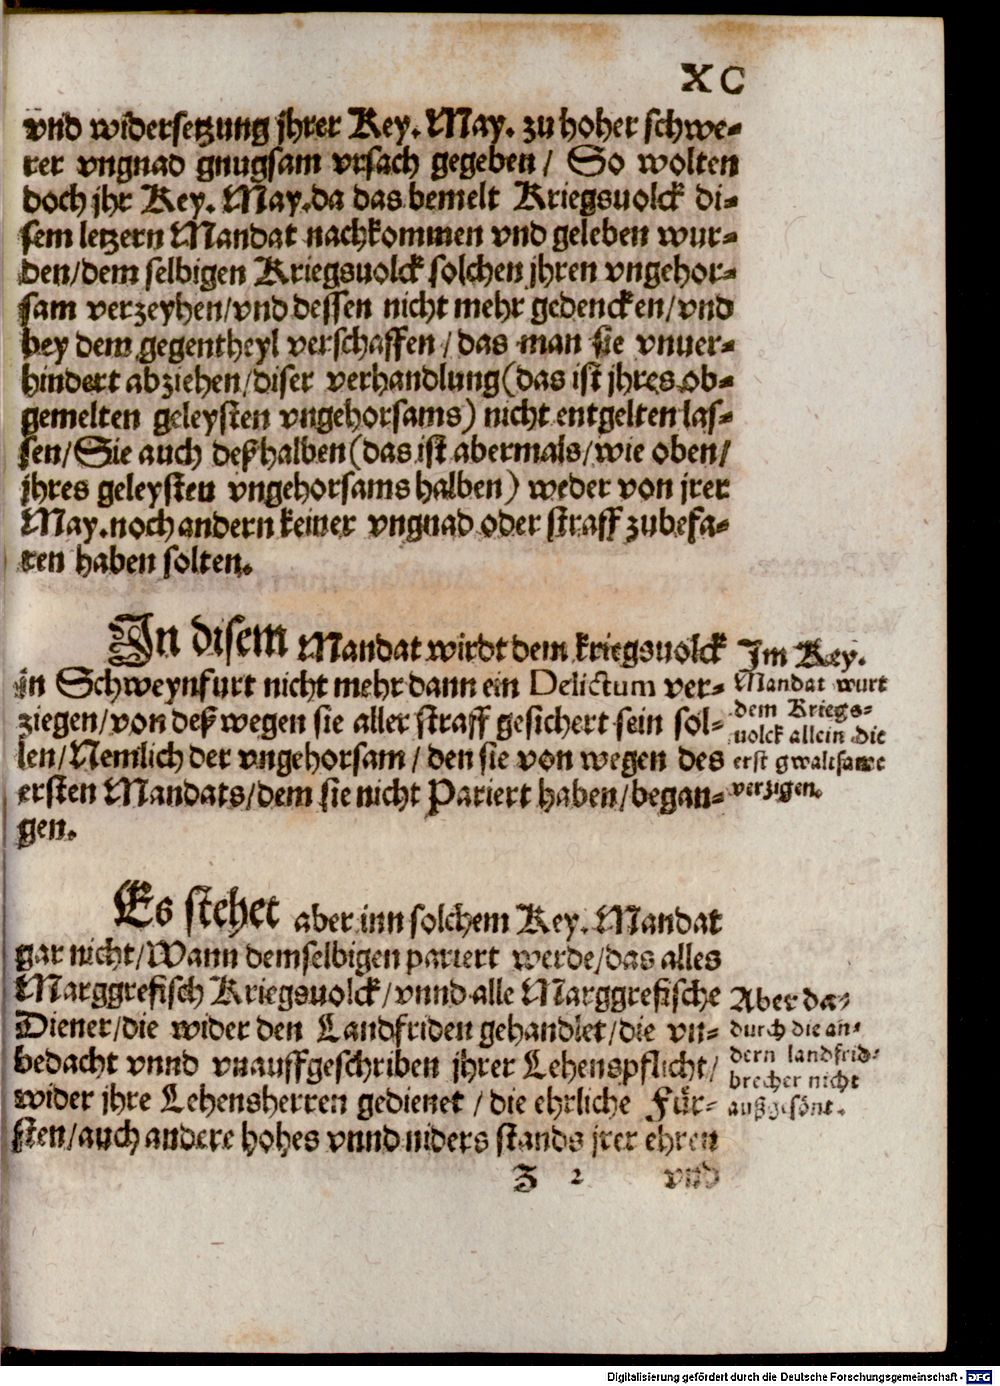 XC
vnd widersetzung jhrer Key. May. zu hoher schwe-
rer vngnad gnugsam vrsach gegeben / So wolten
doch jhr Key. May. da das bemelt Kriegsuolck di-
sem letzern Mandat nachkommen vnd geleben wur-
den/dem selbigen Kriegsuolck solchen jhren vngehor-
sam verzeyhen/vnd dessen nicht mehr gedencken/vnd
bey dem gegentheyl verschaffen / das man sie vnuer-
hindert abziehen/diser verhandlung(das ist jhres ob-
gemelten geleysten vngehorsams) nicht entgelten las-
sen/Sie auch deßhalben(das ist abermals/wie oben/
jhres geleysten vngehorsams halben) weder von jrer
May. noch andern keiner vngnad oder straff zubefa-
ren haben solten.
In disem Mandat wirdt dem kriegsuolck
in Schweynfurt nicht mehr dann ein Delictum ver-
ziegen/von deß wegen sie aller straff gesichert sein sol-
len/Nemlich der vngehorsam/den sie von wegen des
ersten Mandats/dem sie nicht Pariert haben/began-
gen.
Im Key.
Mandat wurt
dem Kriegs-
uolck allein die
erst gwaltsame
verzigen.
Es stehet aber inn solchem Key. Mandat
gar nicht/Wann demselbigen pariert werde/das alles
Marggrefisch Kriegsuolck/vnnd alle Marggrefische
Diener/die wider den Landfriden gehandlet/die vn-
bedacht vnnd vnauffgeschriben jhrer Lehenspflicht/
wider jhre Lehensherren gedienet / die ehrliche Für-
sten/auch andere hohes vnnd niders stands jrer ehren
Aber da-
durch die an-
dern landfrid-
brecher nicht
außgesönt.
Z 2 vnd
Digitalisierung gefördert durch die Deutsche Forschungsgemeinschaft - DFG